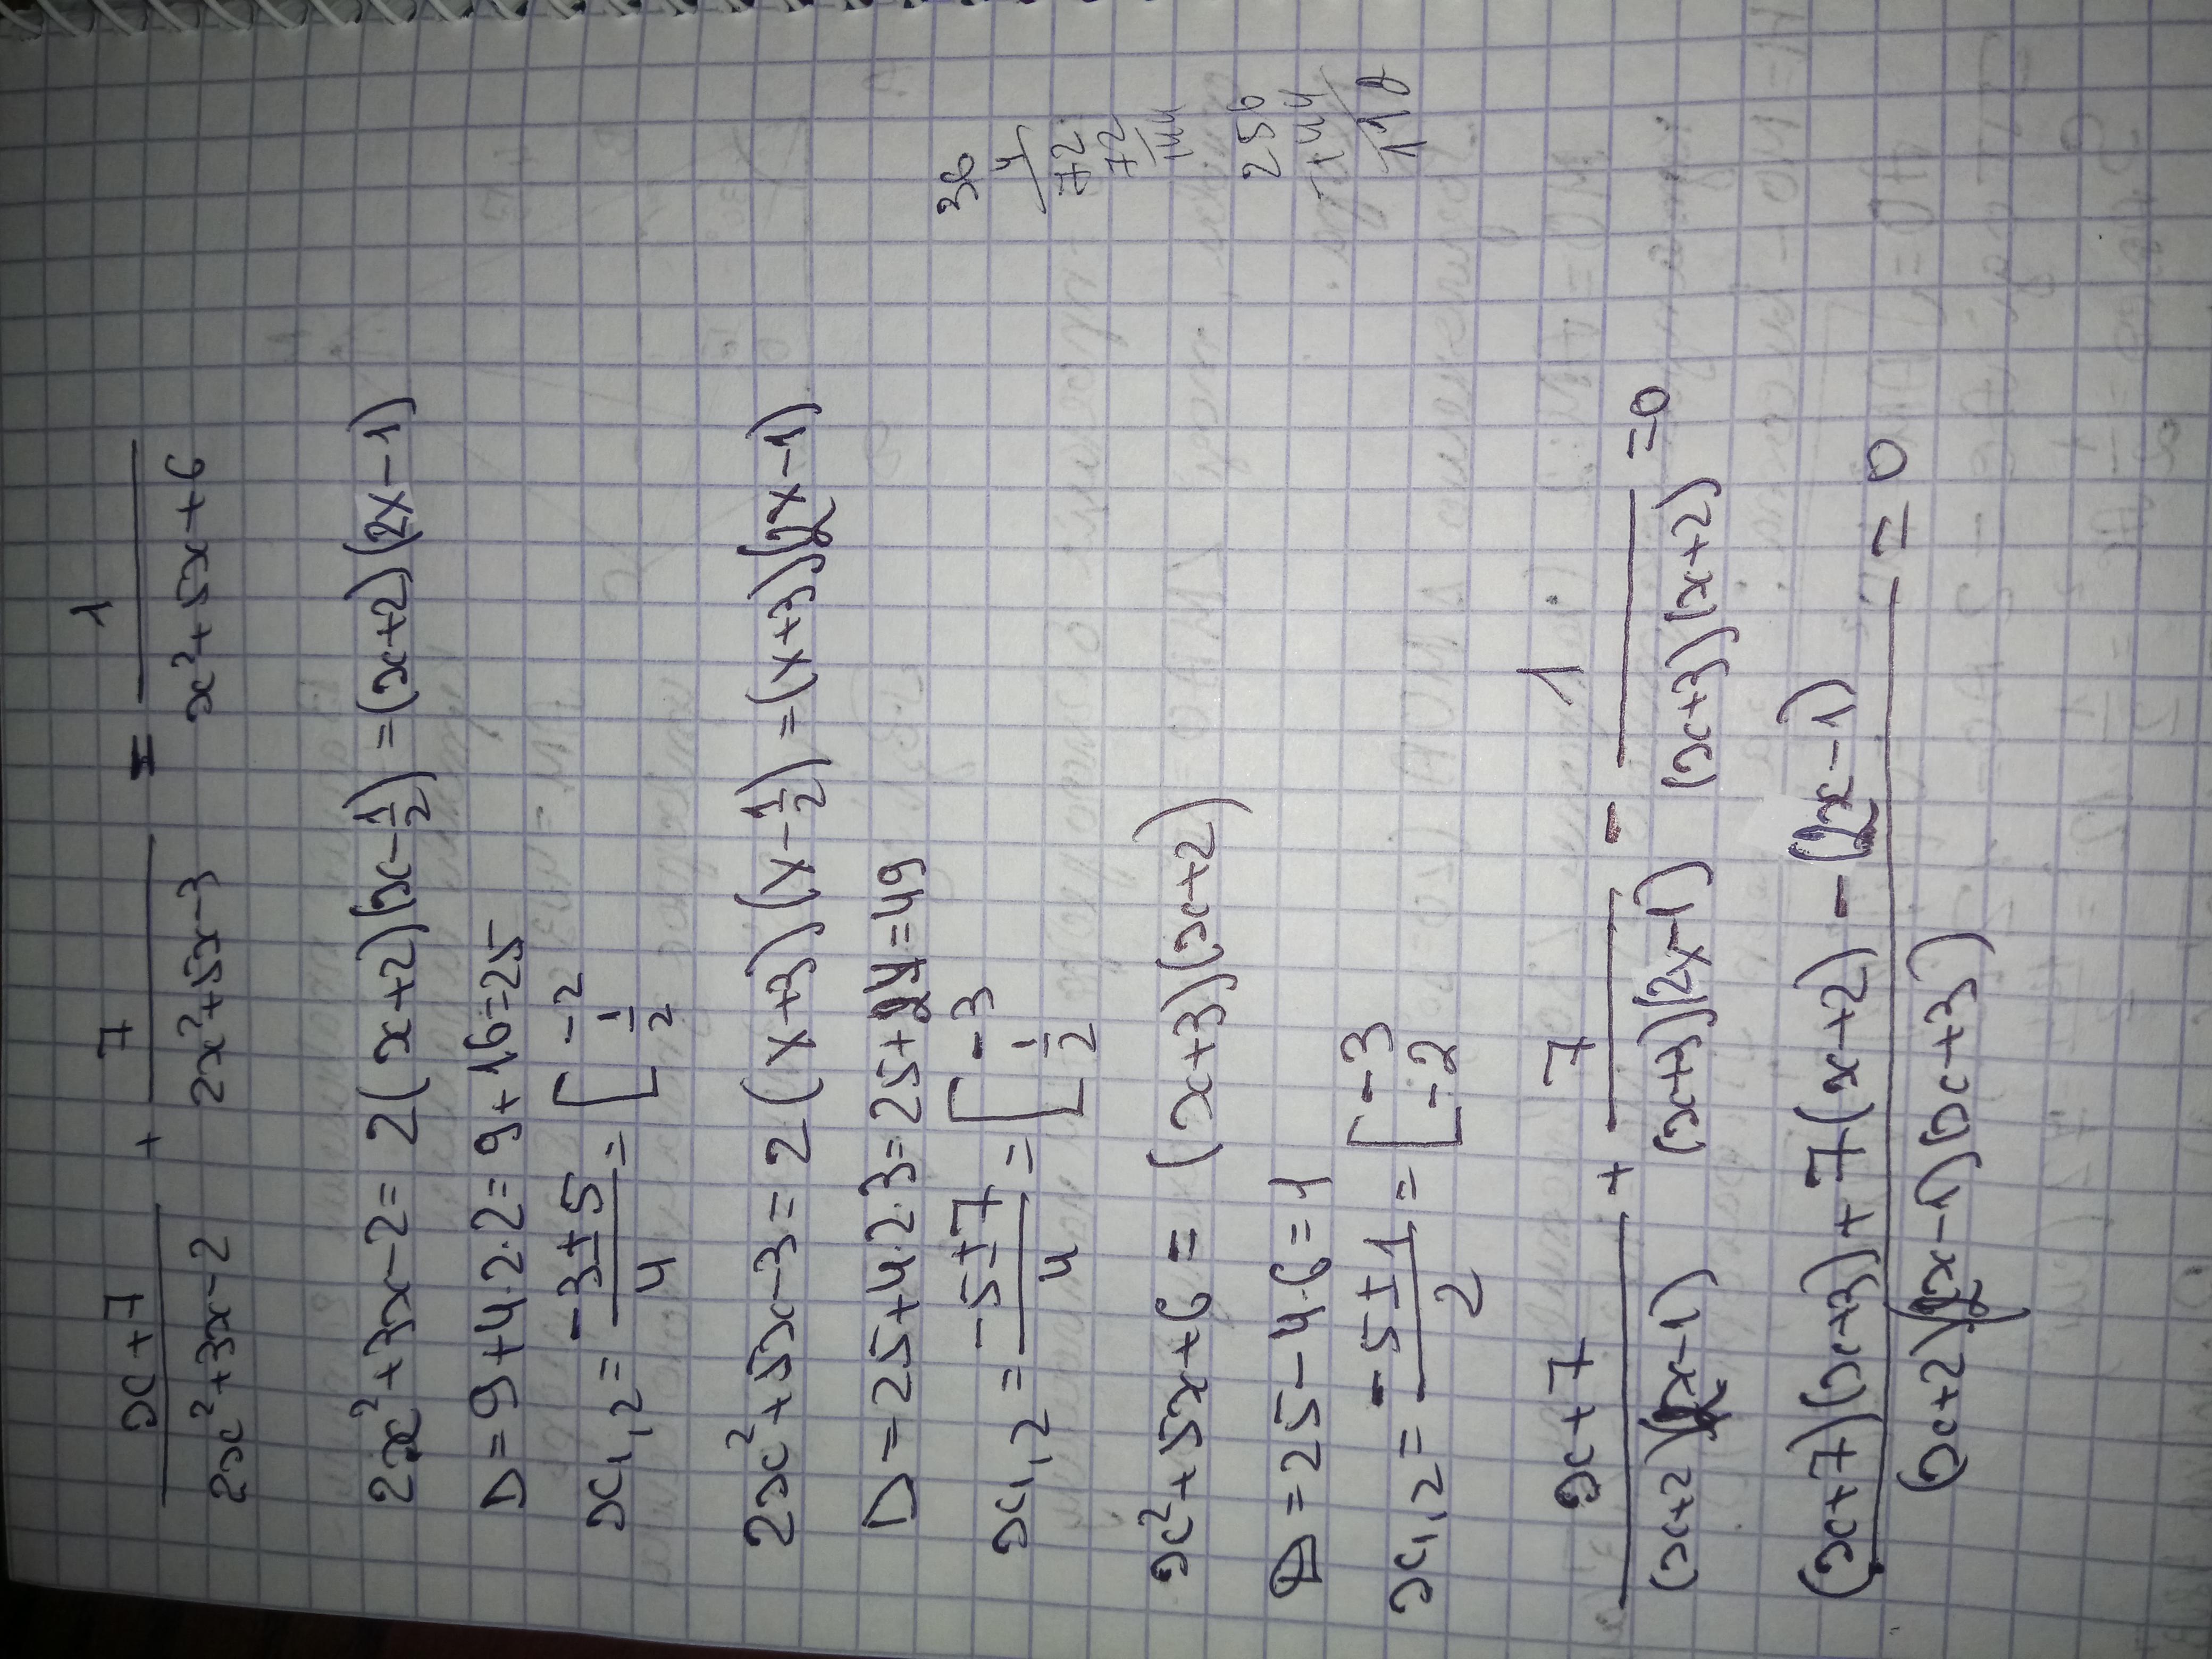 (x+7)/(2x²+3x-2) + 7/(2x²+5x-3) = 1/(x²+5x+6)
2x²+3x-2=2(x+2)(x-1/2)=(x+2)(2x-1)
D=9+4·2·2=9+16=25
x₁,₂=(-3±5)/4=[-2 1/2
2x²+5x-3=2(x+3)(x-1/2)=(x+3)(2x-1)
D=25+4·2·3=25+24=49
x₁,₂=(-5±7)/4=[-3 1/2
x²+5x+6=(x+3)(x+2)
D=25-4·6=1
x₁,₂=(-5±1)/2=[-3 -2
(x+7)/((x+2)(2x-1)) + 7/((x+3)(2x-1)) - 1/((x+3)(x+2)) =0
((x+7)(x+3)+7(x+2)-(2x-1))/((x+2)(2x-1)(x+3)) =0
36
4
72
72
144
256
144